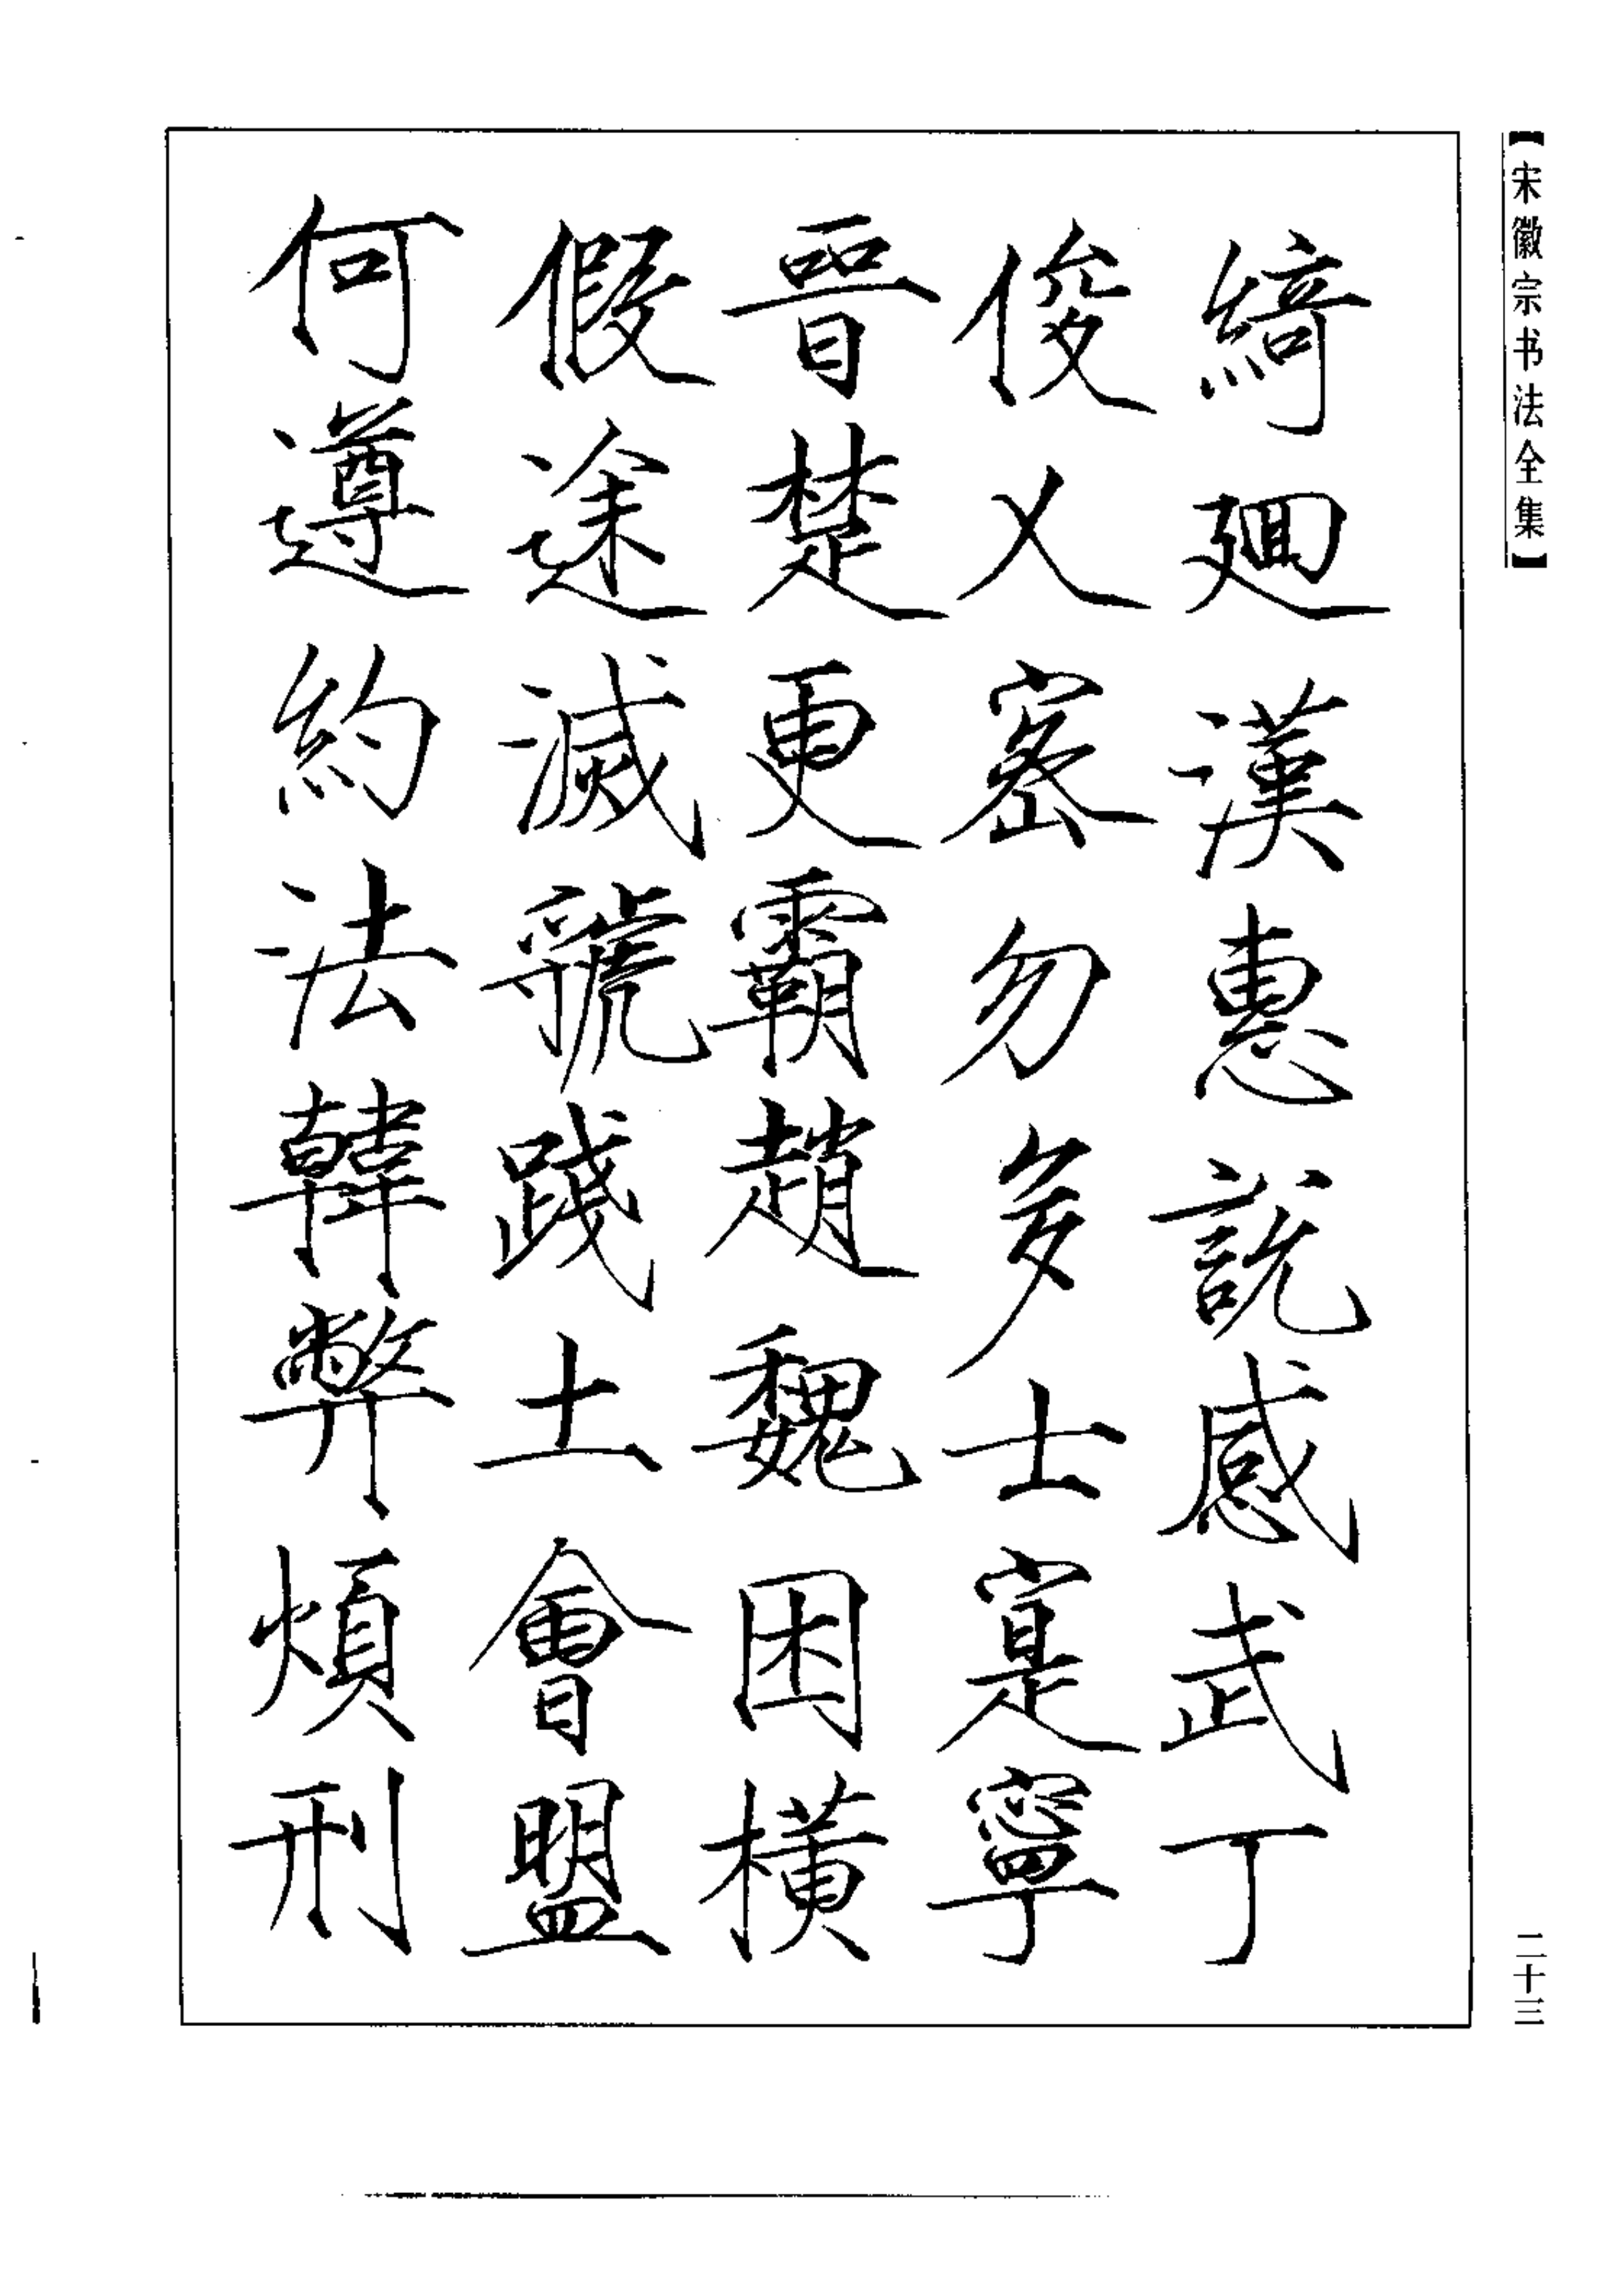 【宋徽宗书法全集】
二十三
綺迴漢惠說感武丁
俊乂密勿多士寔寧
晉楚更霸趙魏困橫
假途滅虢踐土會盟
何遵約法韓弊煩刑